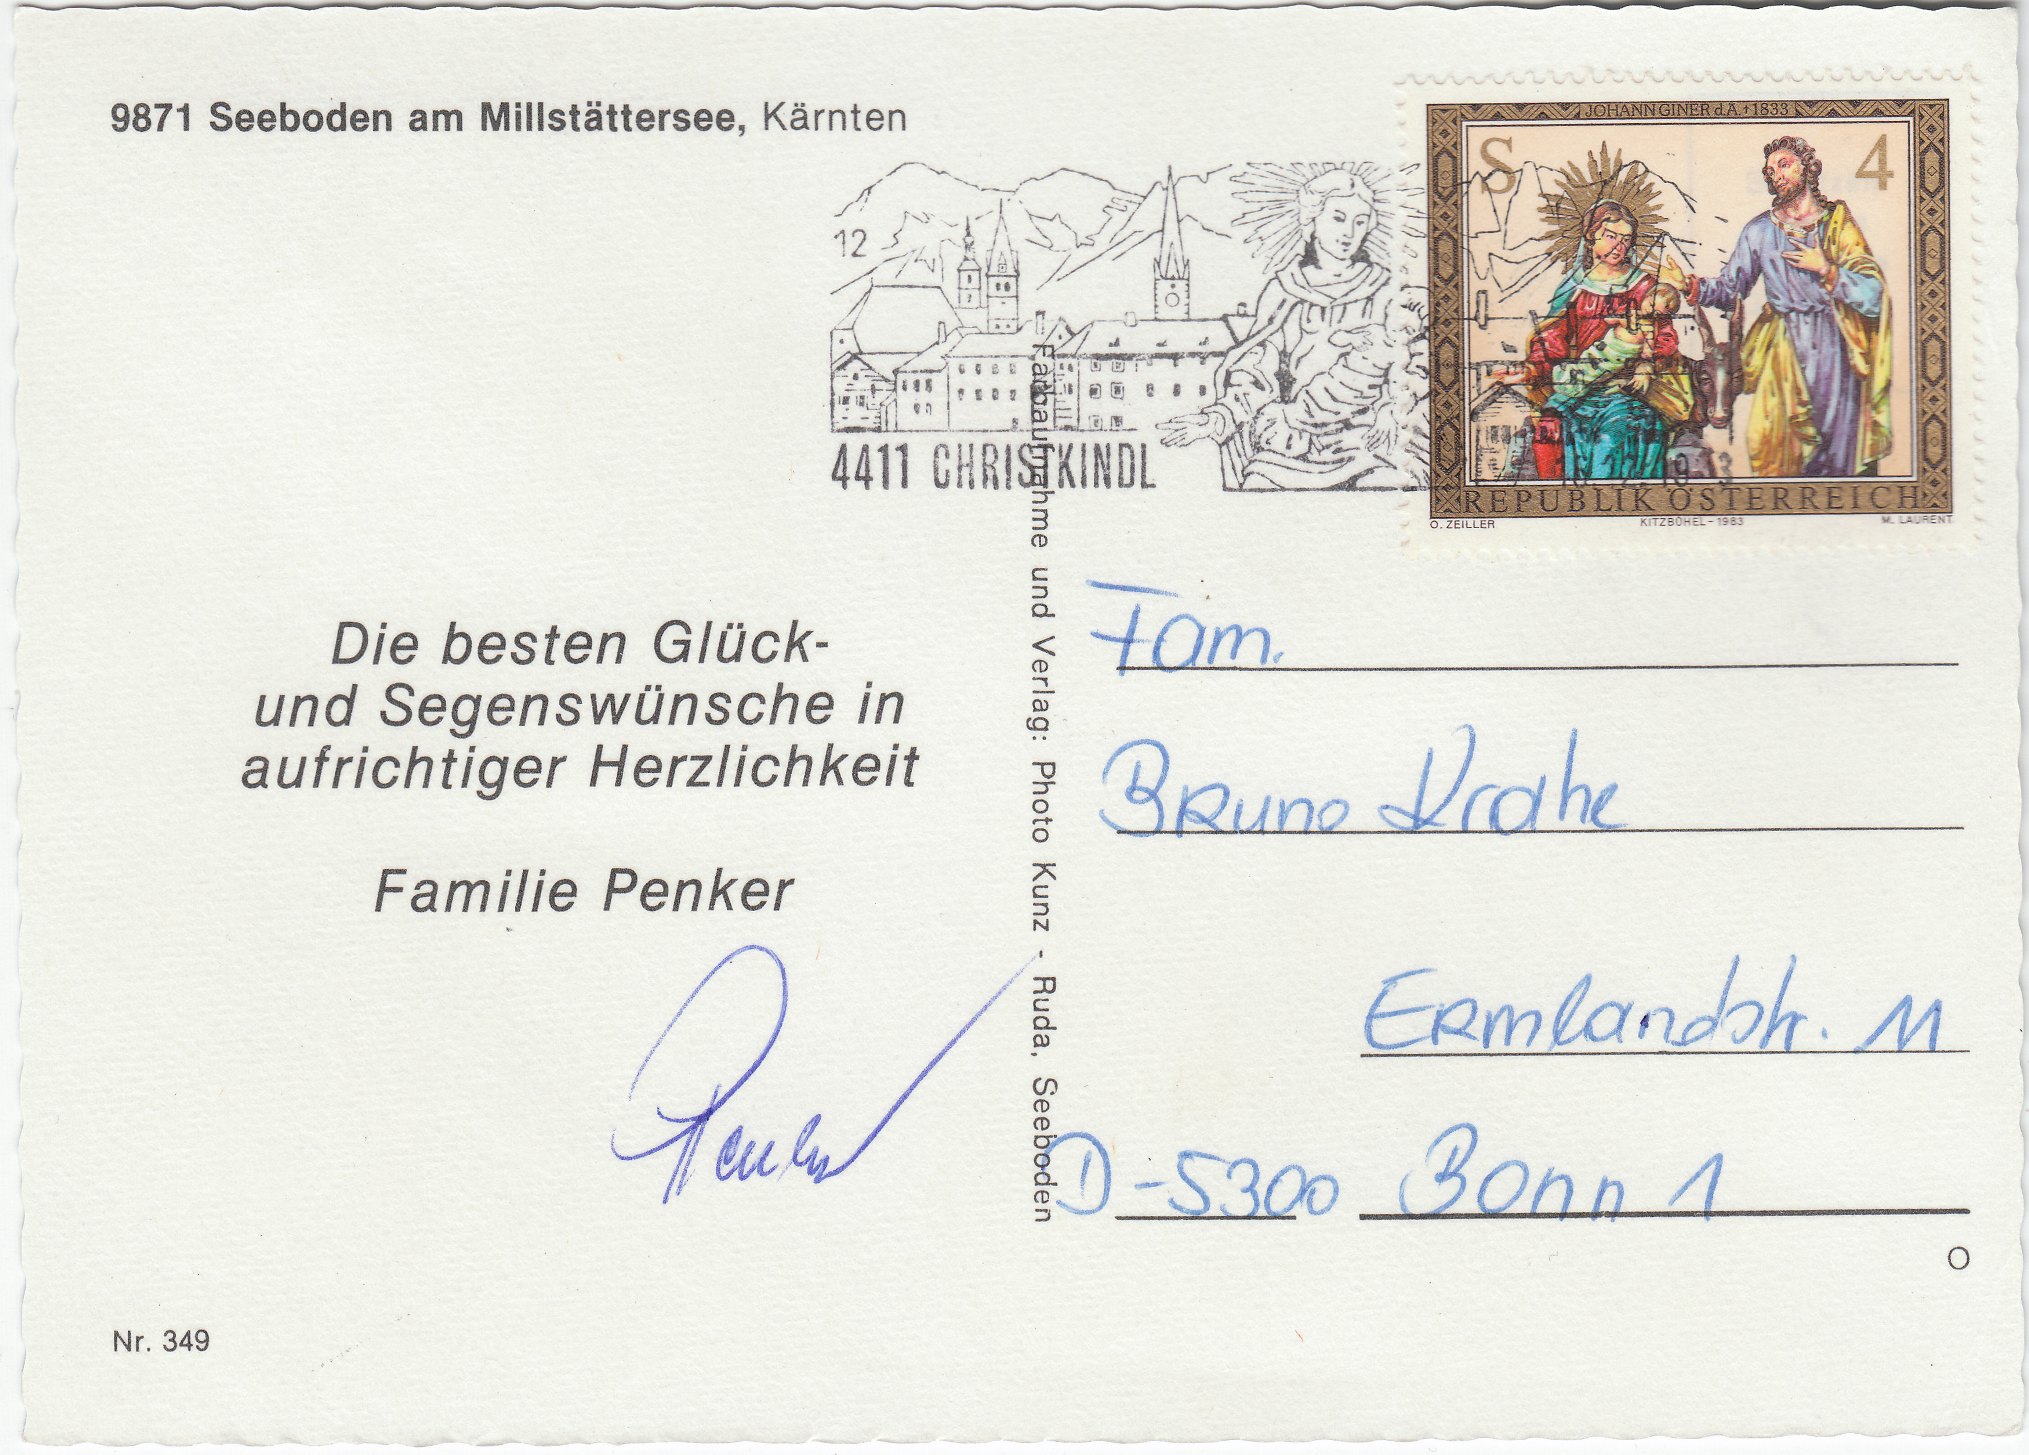 9871 Seeboden am Millstättersee, Kärnten
JOHANN GINER d.Ä. †1833
S 4
REPUBLIK ÖSTERREICH
O. ZEILLER KITZBÜHEL-1983 M. LAURENT
12
4411 CHRISTKINDL
Die besten Glück-
und Segenswünsche in
aufrichtiger Herzlichkeit
Familie Penker
Penker
Nr. 349
Farbaufnahme und Verlag: Photo Kunz - Ruda, Seeboden
Fam.
Bruno Krahe
Ermlandstr. 11
D-5300 Bonn 1
O